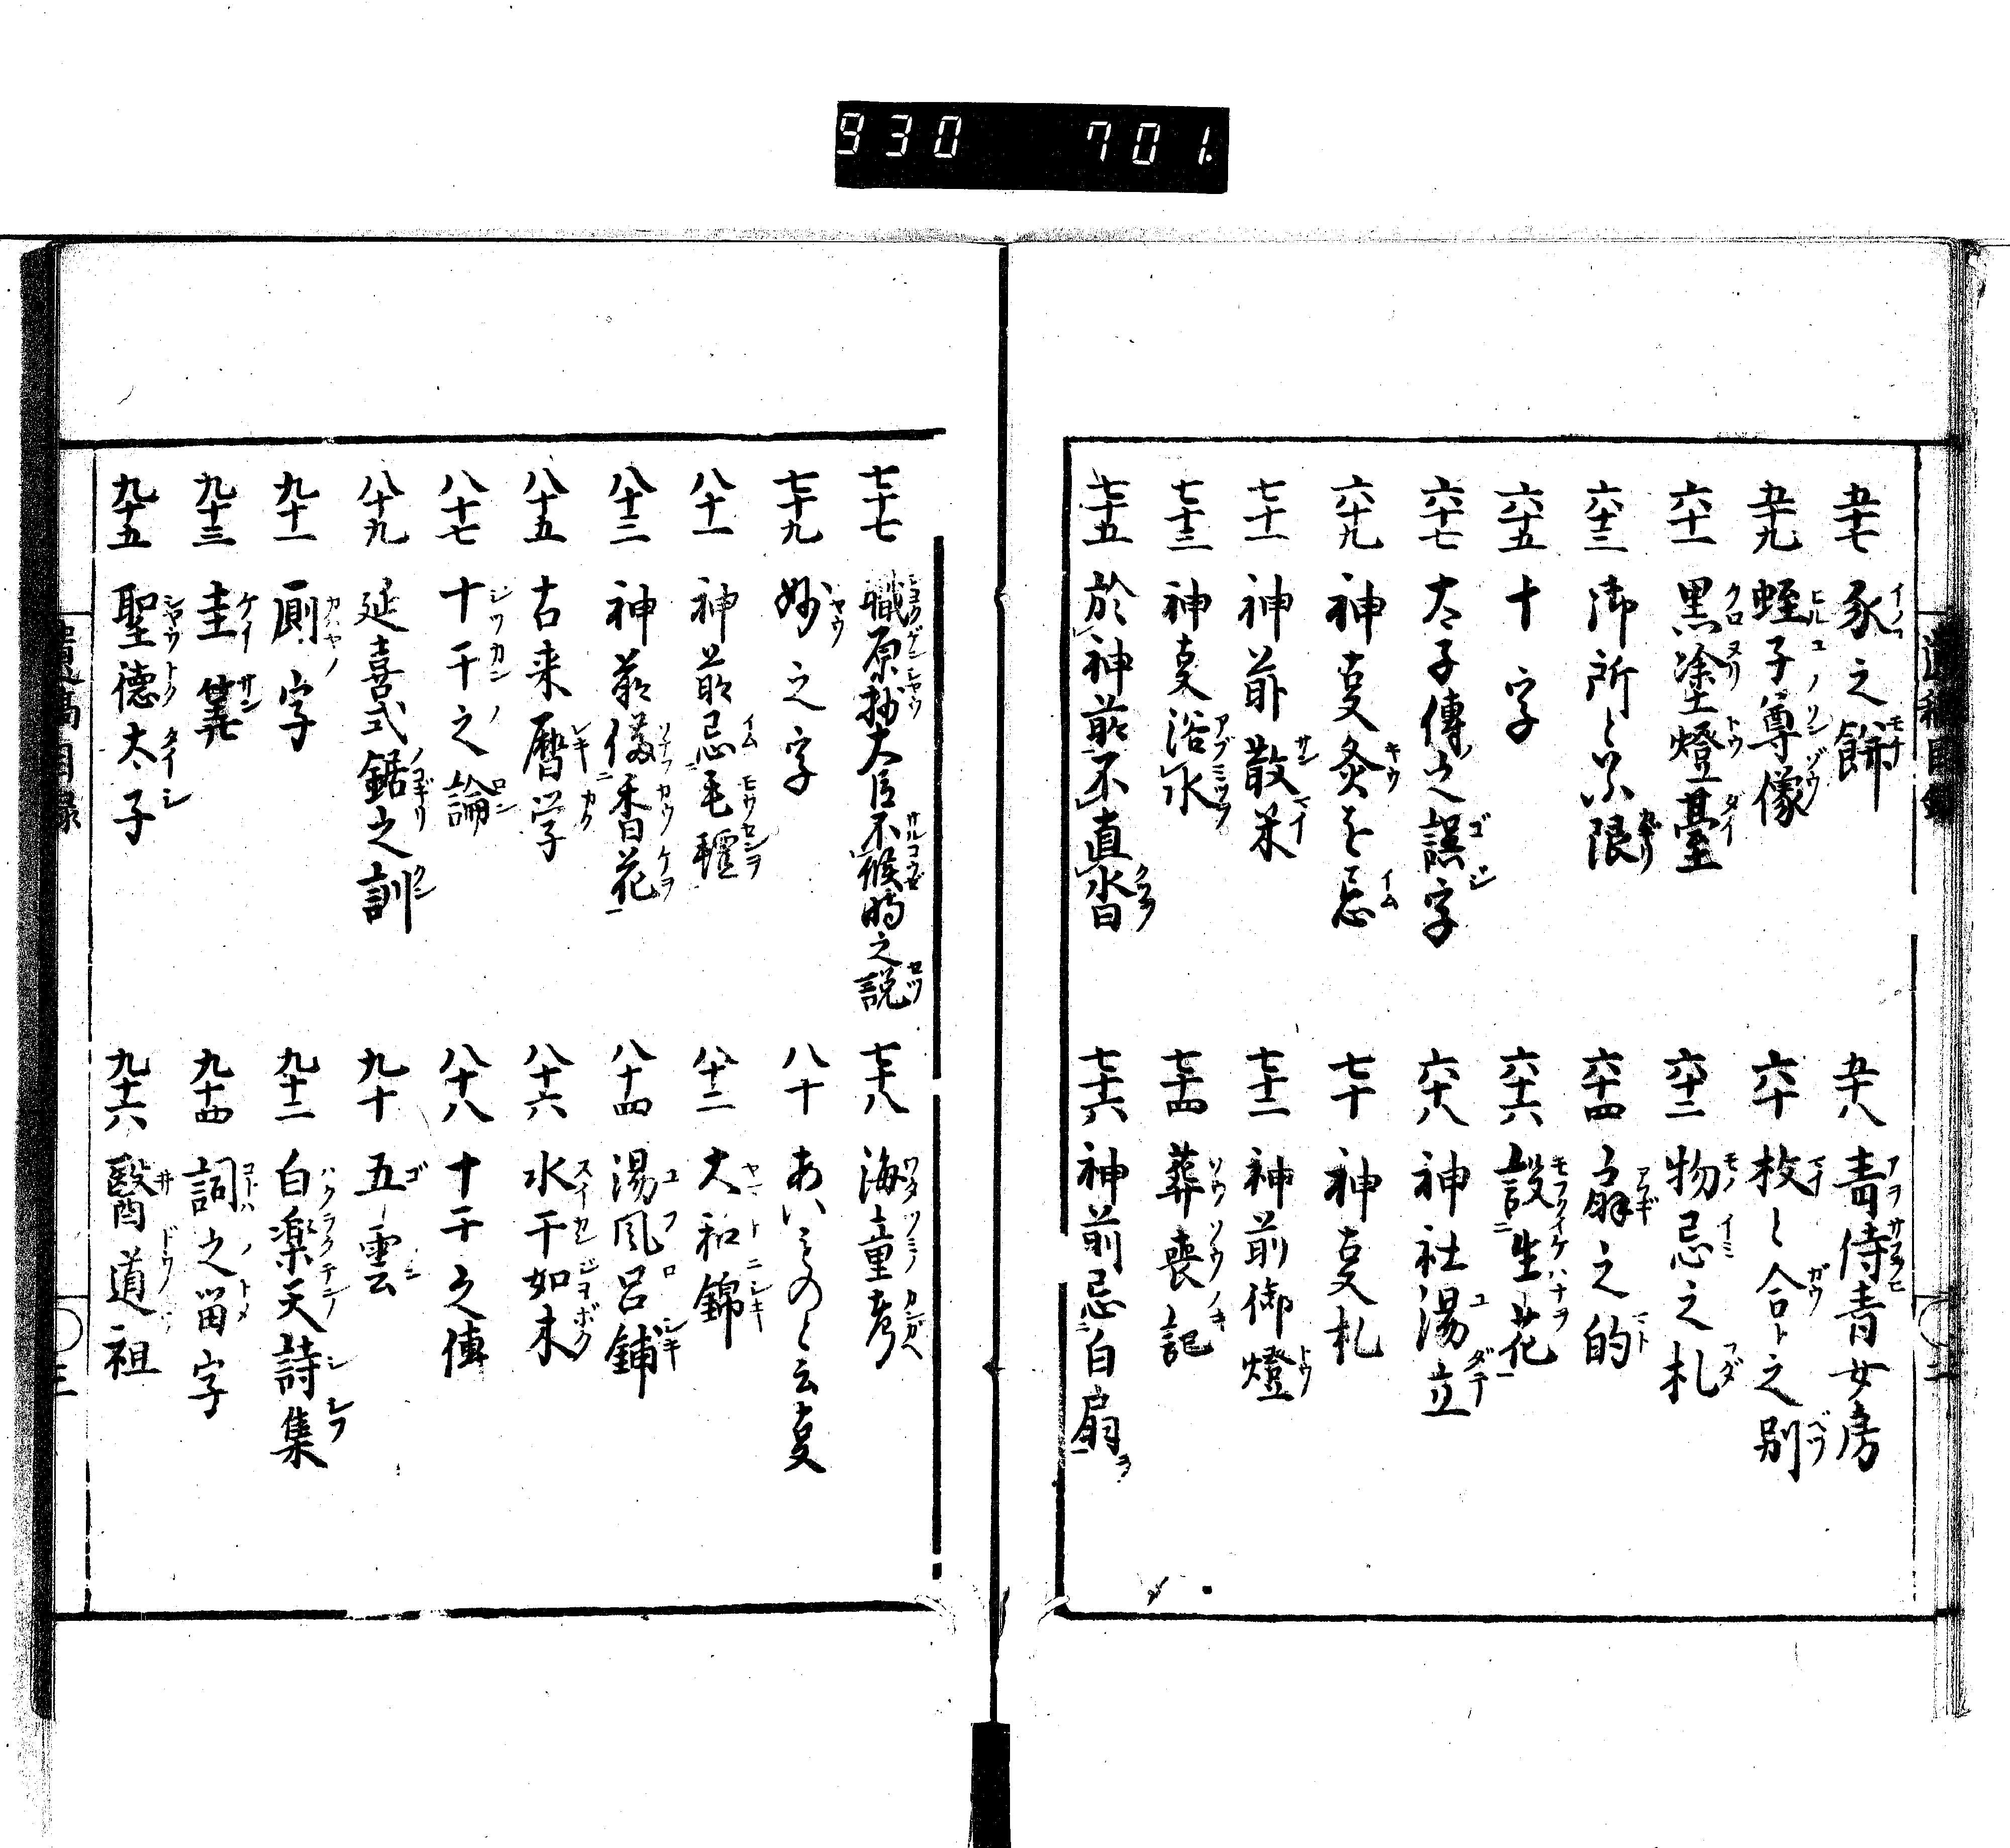 930 701.
五十七 豕之餅
五十八 青侍青女房
五十九 蛭子尊像
六十 枚ト合ト之別
六十一 黒塗燈臺
六十二 物忌之札
六十三 御所と公限
六十四 扇之的
六十五 十字
六十六 設生花
六十七 太子傳之誤字
六十八 神社湯立
六十九 神㕝灸を忌
七十 神㕝札
七十一 神前散米
七十二 神前御燈
七十三 神㕝浴水
七十四 葬喪記
七十五 於神前不直沓
七十六 神前忌白扇
七十七 職原抄大臣不候時之説
七十八 海童考
七十九 妙之字
八十 あいものと云㕝
八十一 神前忌毛氈
八十二 大和錦
八十三 神前備香花
八十四 湯風呂鋪
八十五 古来暦学
八十六 水干如木
八十七 十干之論
八十八 十干之傳
八十九 延喜式鋸之訓
九十 五雲
九十一 厠字
九十二 白楽天詩集
九十三 圭筭
九十四 詞之留字
九十五 聖徳太子
九十六 醫道祖